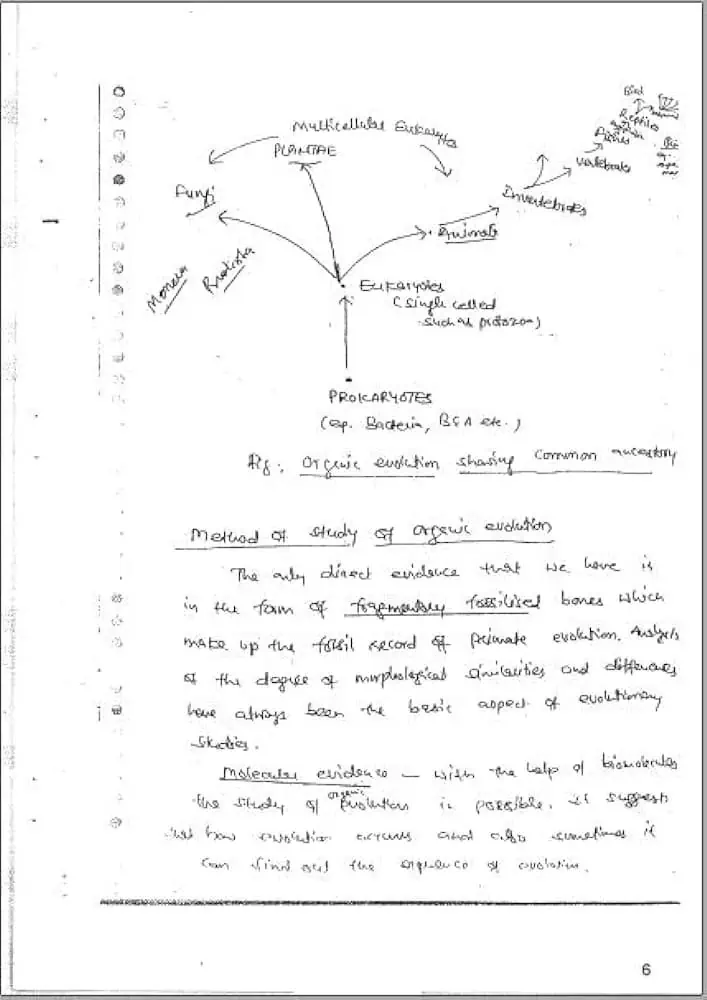 Bird
Reptiles
Amphibia
Pisces
Vertebrates
Invertebrates
Multicellular Eukaryotes
PLANTAE
Fungi
Animals
Monera
Protista
Eukaryotes
(single celled
such as protozoa)
PROKARYOTES
(eg. Bacteria, BGA etc.)
Fig: Organic evolution sharing common ancestory
Method of study of organic evolution
The only direct evidence that we have is
in the form of fragmentary fossilised bones which
make up the fossil record of primate evolution. Analysis
of the degree of morphological similarities and differences
have always been the basic aspect of evolutionary
studies.
Molecular evidence — with the help of biomolecules
the study of organic evolution is possible. It suggests
how evolution occurs and also sometimes it
can find out the sequence of evolution.
6